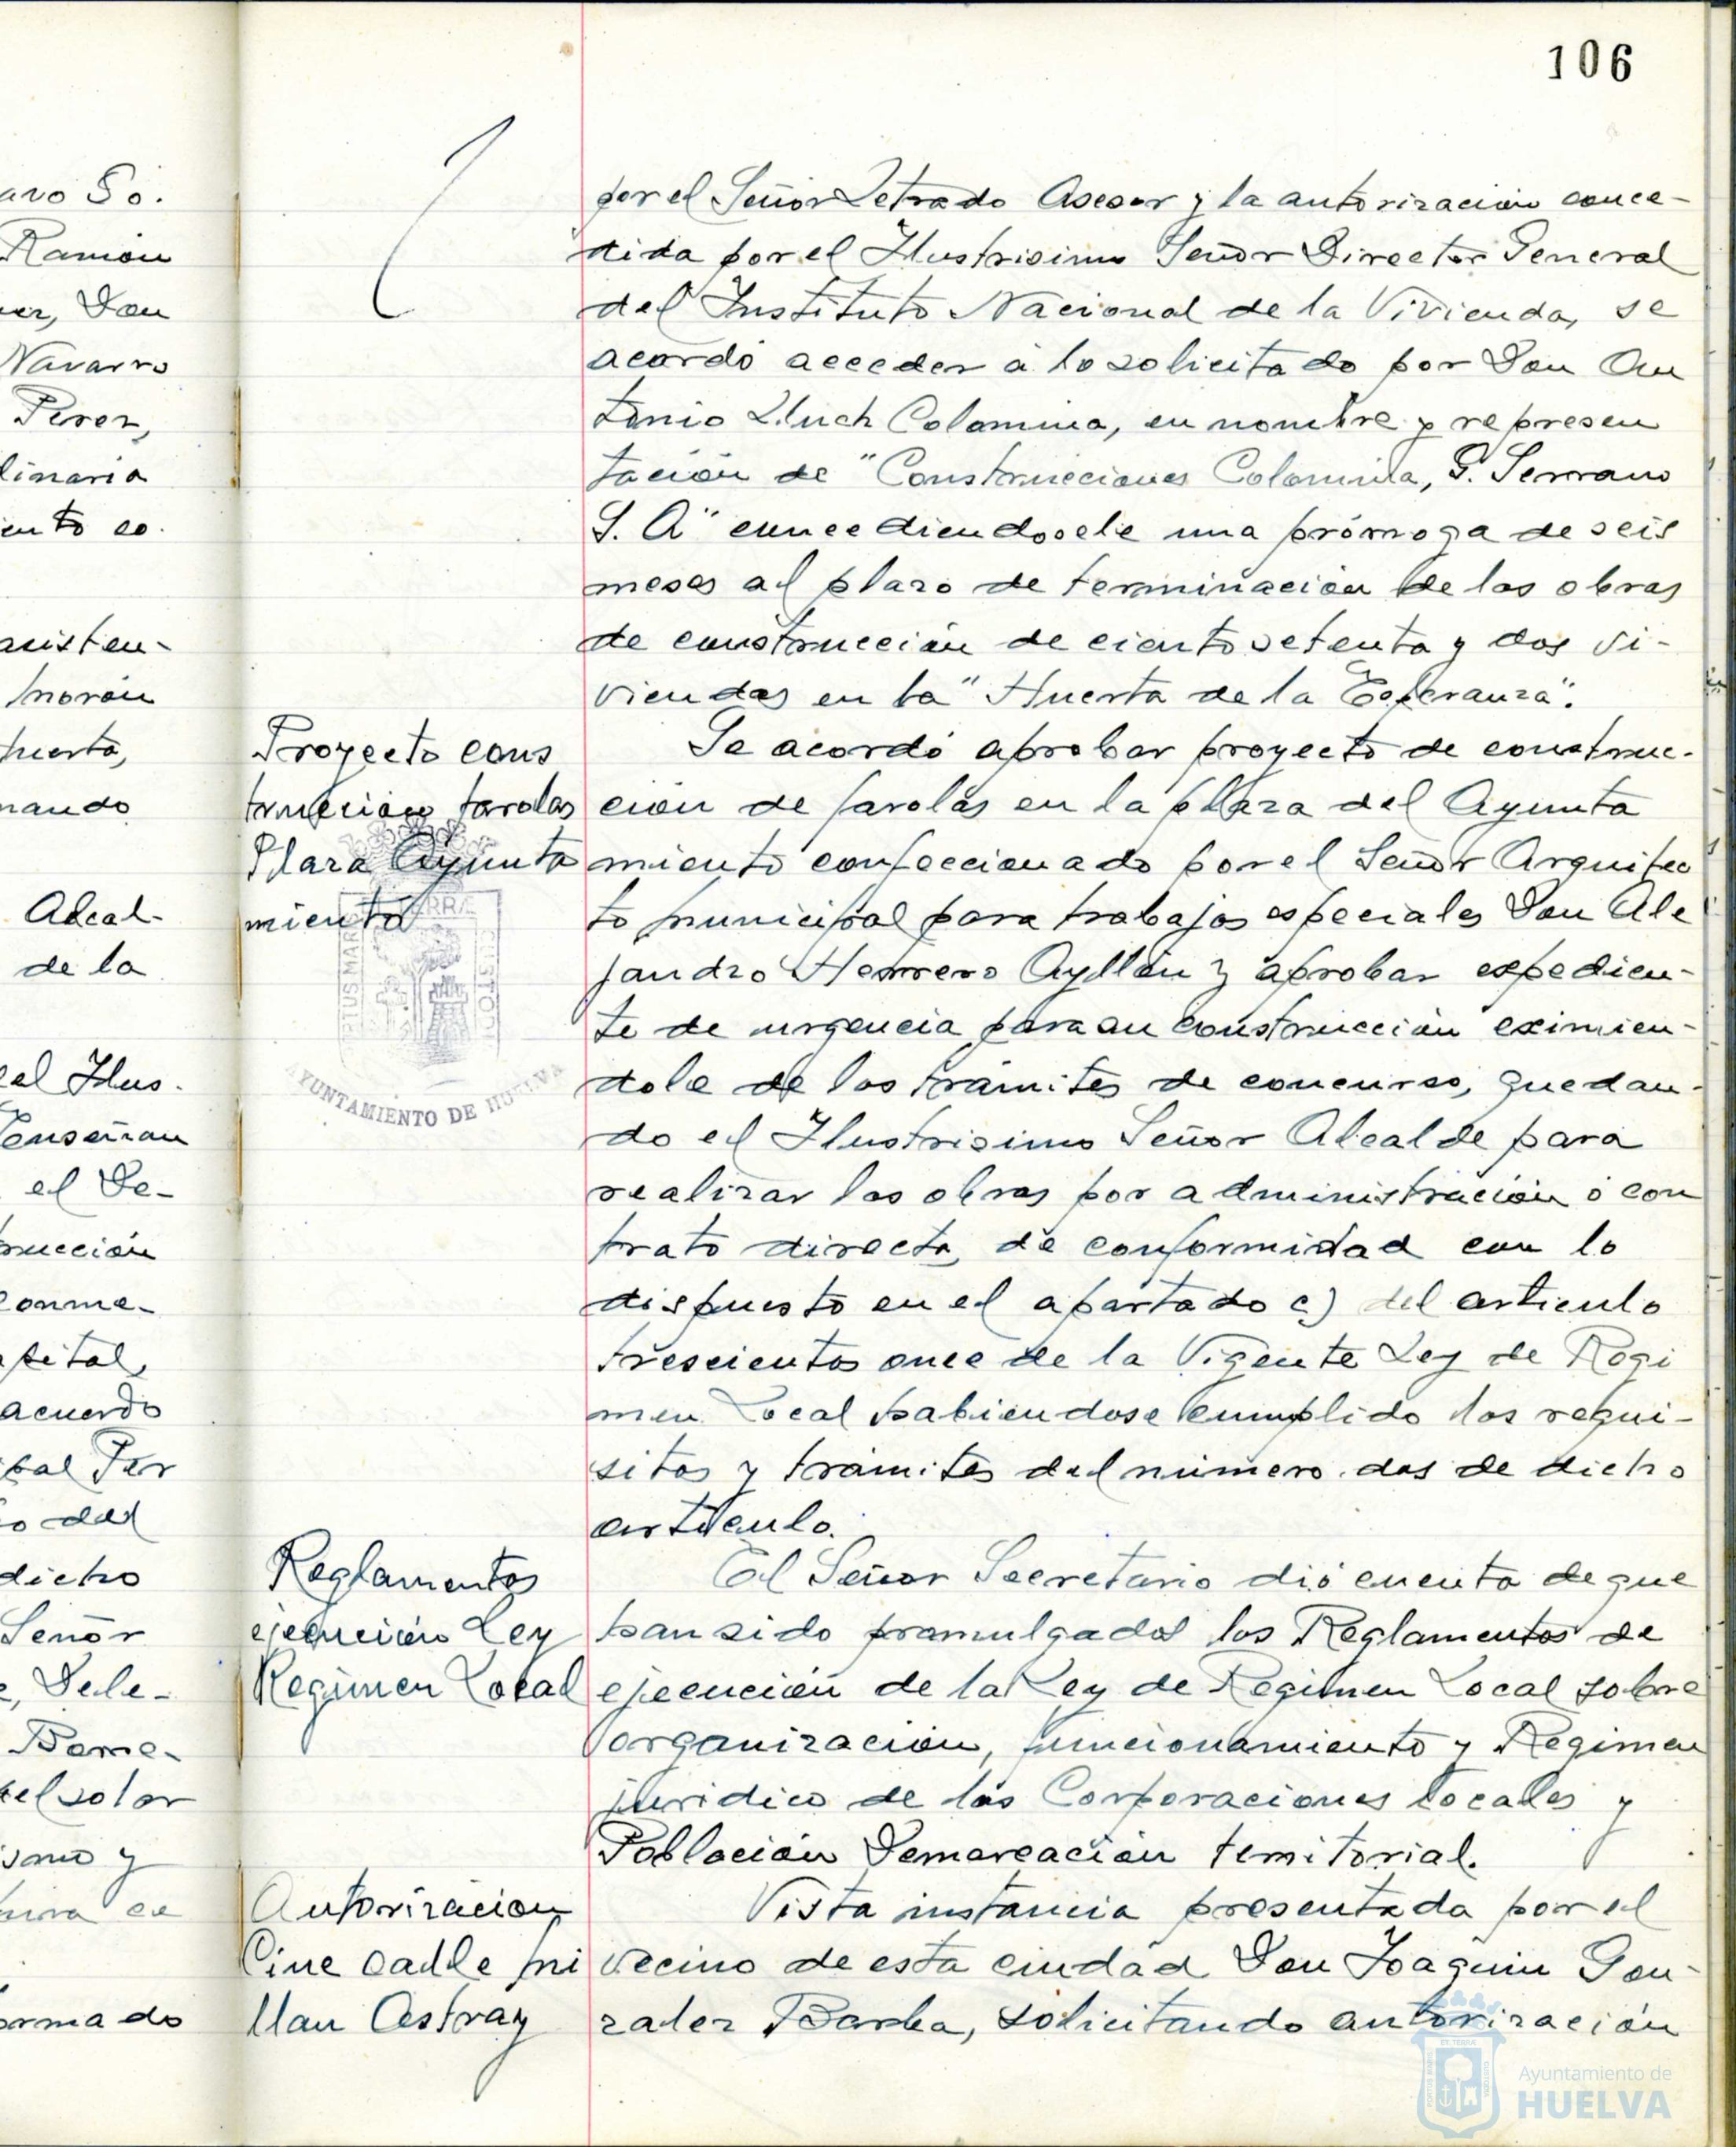 106
avo Só.
Ramón
er, Don
Navarro
Perez,
linaria
ento co.
asisten-
Morón
huerta,
nando
Alcal-
de la
el Ilus.
Enseñan
el De-
rucción
conme-
pital,
acuerdo
pal Per
o del
dicho
Señor
e, Dele-
Borre-
el solar
ismo y
ormado
por el Señor Letrado Asesor y la autorización conce-
dida por el Ilustrisimo Señor Director General
del Instituto Nacional de la Vivienda, se
acordó acceder a lo solicitado por Don An
tonio Lluch Colomina, en nombre y represen
tación de "Construcciones Colomina, G. Serrano
S. A" concediendosele una prórroga de seis
meses al plazo de terminación de las obras
de construcción de ciento setenta y dos vi-
viendas en la "Huerta de la Esperanza".
Proyecto cons
trucción farolas
Plaza Ayunta
miento
Se acordó aprobar proyecto de construc-
ción de farolas en la plaza del Ayunta
miento confeccionado por el Señor Arquitec
to Municipal para trabajos especiales Don Ale
jandro Herrero Ayllón y aprobar expedien-
te de urgencia para su construcción eximien-
dole de los trámites de concurso, quedan-
do el Ilustrisimo Señor Alcalde para
realizar las obras por administración ó con
trato directo, de conformidad con lo
dispuesto en el apartado c) del articulo
trescientos once de la Vigente Ley de Regi
men Local habiendose cumplido los requi-
sitos y trámites del número dos de dicho
articulo.
AYUNTAMIENTO DE HUELVA
Reglamentos
ejecución Ley
Regimen Local
El Señor Secretario dió cuenta de que
han sido promulgados los Reglamentos de
ejecución de la Ley de Regimen Local sobre
organización, funcionamiento y Regimen
juridico de las Corporaciones locales y
Población Demarcación territorial.
Autorización
Cine calle Mi
llan Astray
Vista instancia presentada por el
vecino de esta ciudad Don Joaquin Gon-
zalez Barba, solicitando autorización
Ayuntamiento de
HUELVA